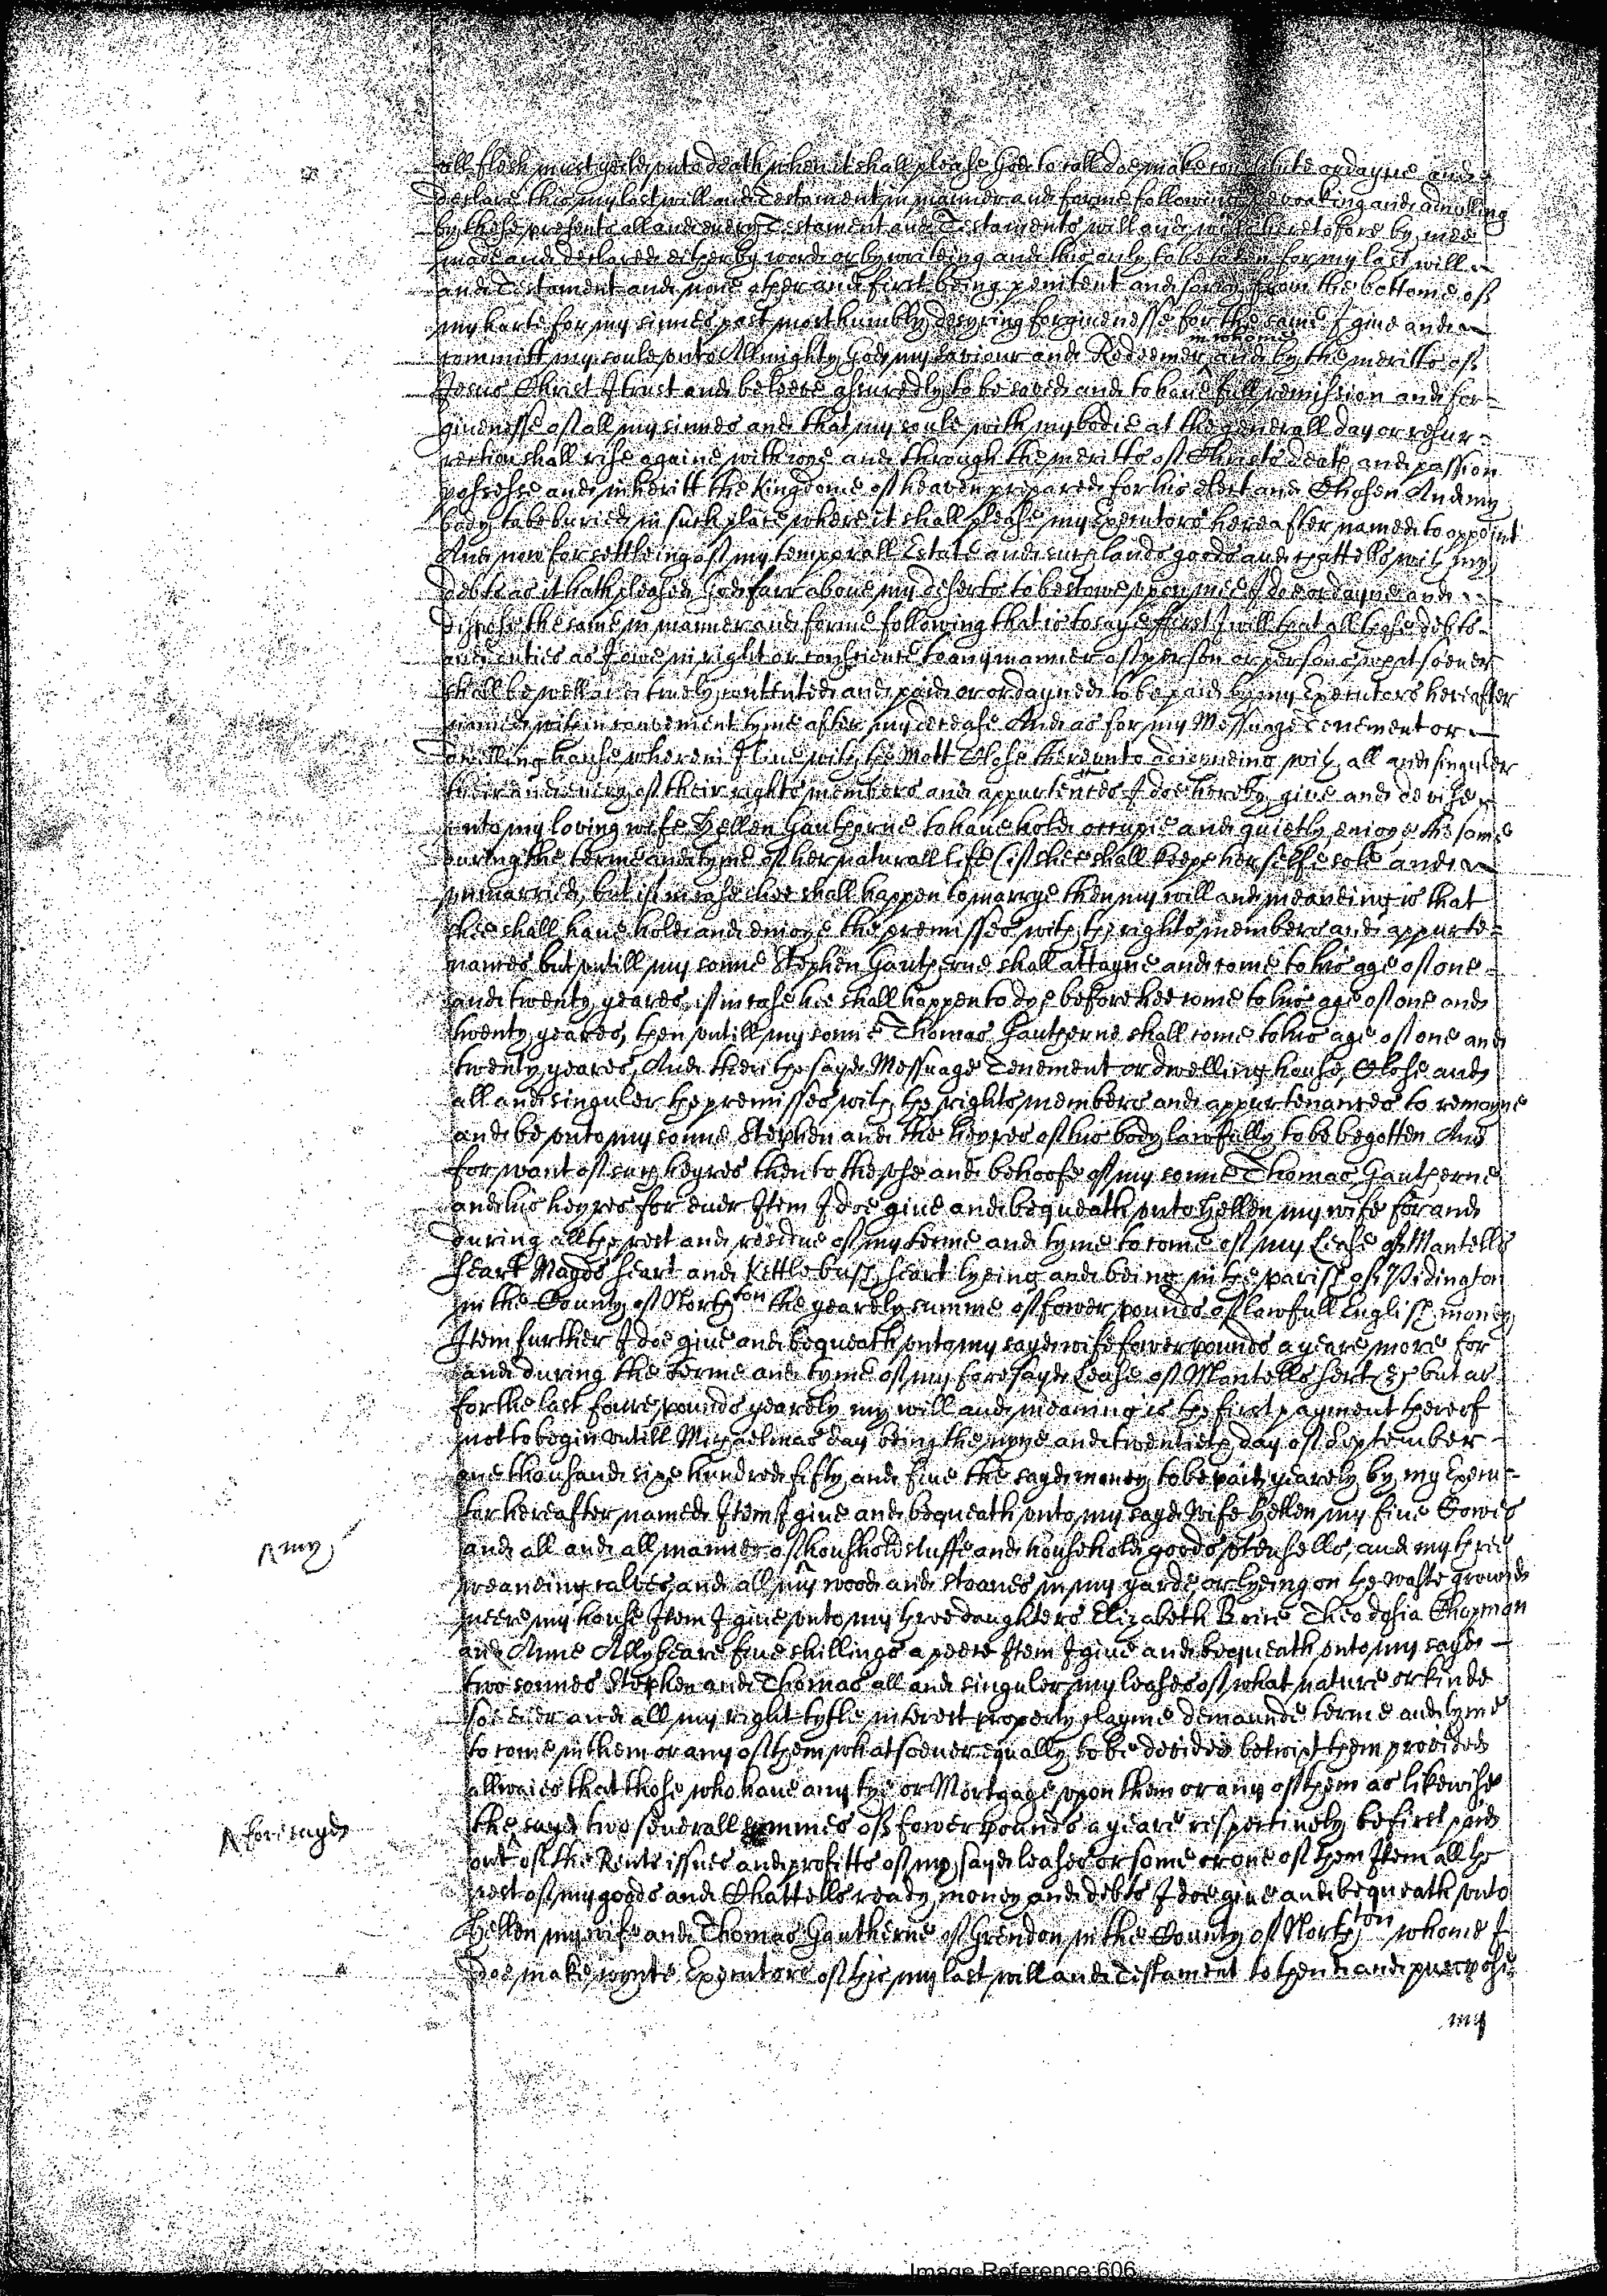 all flesh must yeild unto death when it shall please God to call doe make constitute ordayne and
declare this my last will and Testament in manner and forme following revoaking and adnulling
by these presents all and every Testament and Testaments will and wills heretofore by mee
made and declared either by word or by writeing and this only to be taken for my last will
and Testament and none other and first being penitent and sorry from the bottome of
my harte for my sinnes past most humbly desyring forgivenesse for the same I give and
committ my soule unto Allmighty God my saviour and Redeemer in whome and by the meritts of
Jesus Christ I trust and beleeve assuredly to be saved and to have full remission and for-
givenesse of all my sinnes and that my soule with my bodie at the generall day or resur-
rection shall rise againe with ioye and through the meritts of Christs death and passion
possesse and inheritt the kingdome of heaven prepared for his elect and Chosen And my
body to be buried in such place where it shall please my Executors hereafter named to appoint
And now for settleing of my temporall Estate and such lands goods and chattells with my
debts as it hath pleased God farr above my deserts to bestowe upon mee I doe ordayne and
dispose the same in manner and forme following that is to saye ffirst I will that all those debts
and duties as I owe in right or conscience to any manner of person or persons whatsoever
shall be well and truely contented and paid or ordayned to be paid by my Executors hereafter
named within convenient tyme after my decease And as for my Messuage Tenement or
dwelling house wherein I live with the Mott Close thereunto adioyneing with all and singuler
their and every of their rights members and appurtences I doe hereby give and devise
unto my loving wife Hellen Gautherne to have hold occupie and quietly enioye the same
during the terme and tyme of her naturall life (if shee shall keepe her selfe sole and
unmarried, but if in case shee shall happen to marrye then my will and meaneing is that
shee shall have hold and enioye the premisses with th rights members and appurte-
nances but untill my sonne Stephen Gautherne shall attayne and come to his age of one
and twenty yeares, if in case hee shall happen to dye before hee come to his age of one and
twenty yeares, then untill my sonne Thomas Gautherne shall come to his age of one and
twenty yeares, And then the sayd Messuage Tenement or dwelling house, Close and
all and singuler the premisses with the rights members and appurtenances to remayne
and be unto my sonne Stephen and the heyres of his body lawfully to be begotten And
for want of such heyres then to the use and behoofe of my sonne Thomas Gautherne
and his heyres for ever Item I doe give and bequeath unto Hellen my wife for and
during all the rest and residue of my terme and tyme to come of my Lease of Mantells
heart Mayds heart and Kettlebush heart lyeing and being in the parish of Pidington
in the County of Northton the yearely summe of fower pounds of lawfull English money
Item further I doe give and bequeath unto my sayd wife fower pounds a yeare more for
and during the terme and tyme of my foresayd Lease of Mantells hert &c but as
for the last foure pounds yearely my will and meaning is the first payment thereof
not to begin untill Michaelmas day being the nyne and twentieth day of September
one thousand sixe hundred fifty and five the sayd money to be paid yearely by my Execu-
tor hereafter named Item I give and bequeath unto my sayd wife Hellen my five Cowes
and all and all manner of houshold stuffe and household goods utensells, and my three
my
weaneing calves and all my wood and stoanes in my yarde or lyeing on the waste grounde
neere my house Item I give unto my three daughters Elizabeth Theodosia Chapman
and Anne Allybeare five shillings a peece Item I give and bequeath unto my sayd
two sonnes Stephen and Thomas all and singuler my leases of what nature or kinde
soever and all my right tytle interest property clayme demaunde terme and tyme
to come in them or any of them whatsoever equally to be devided betwixt them provided
allwaies that those who have any tye or Mortgage upon them or any of them as likewise
foresayd
the sayd two severall summes of fower pounds a yeare respectively be first paid
out of the Rents issues and profitts of my sayd leases or some or one of them Item all the
rest of my goods and Chattells ready money and debts I doe give and bequeath unto
Hellen my wife and Thomas Gautherne of Grendon in the County of Northton whome I
doe make ioynte Executors of this my last will and Testament to thend and purpose
my
Image Reference:606